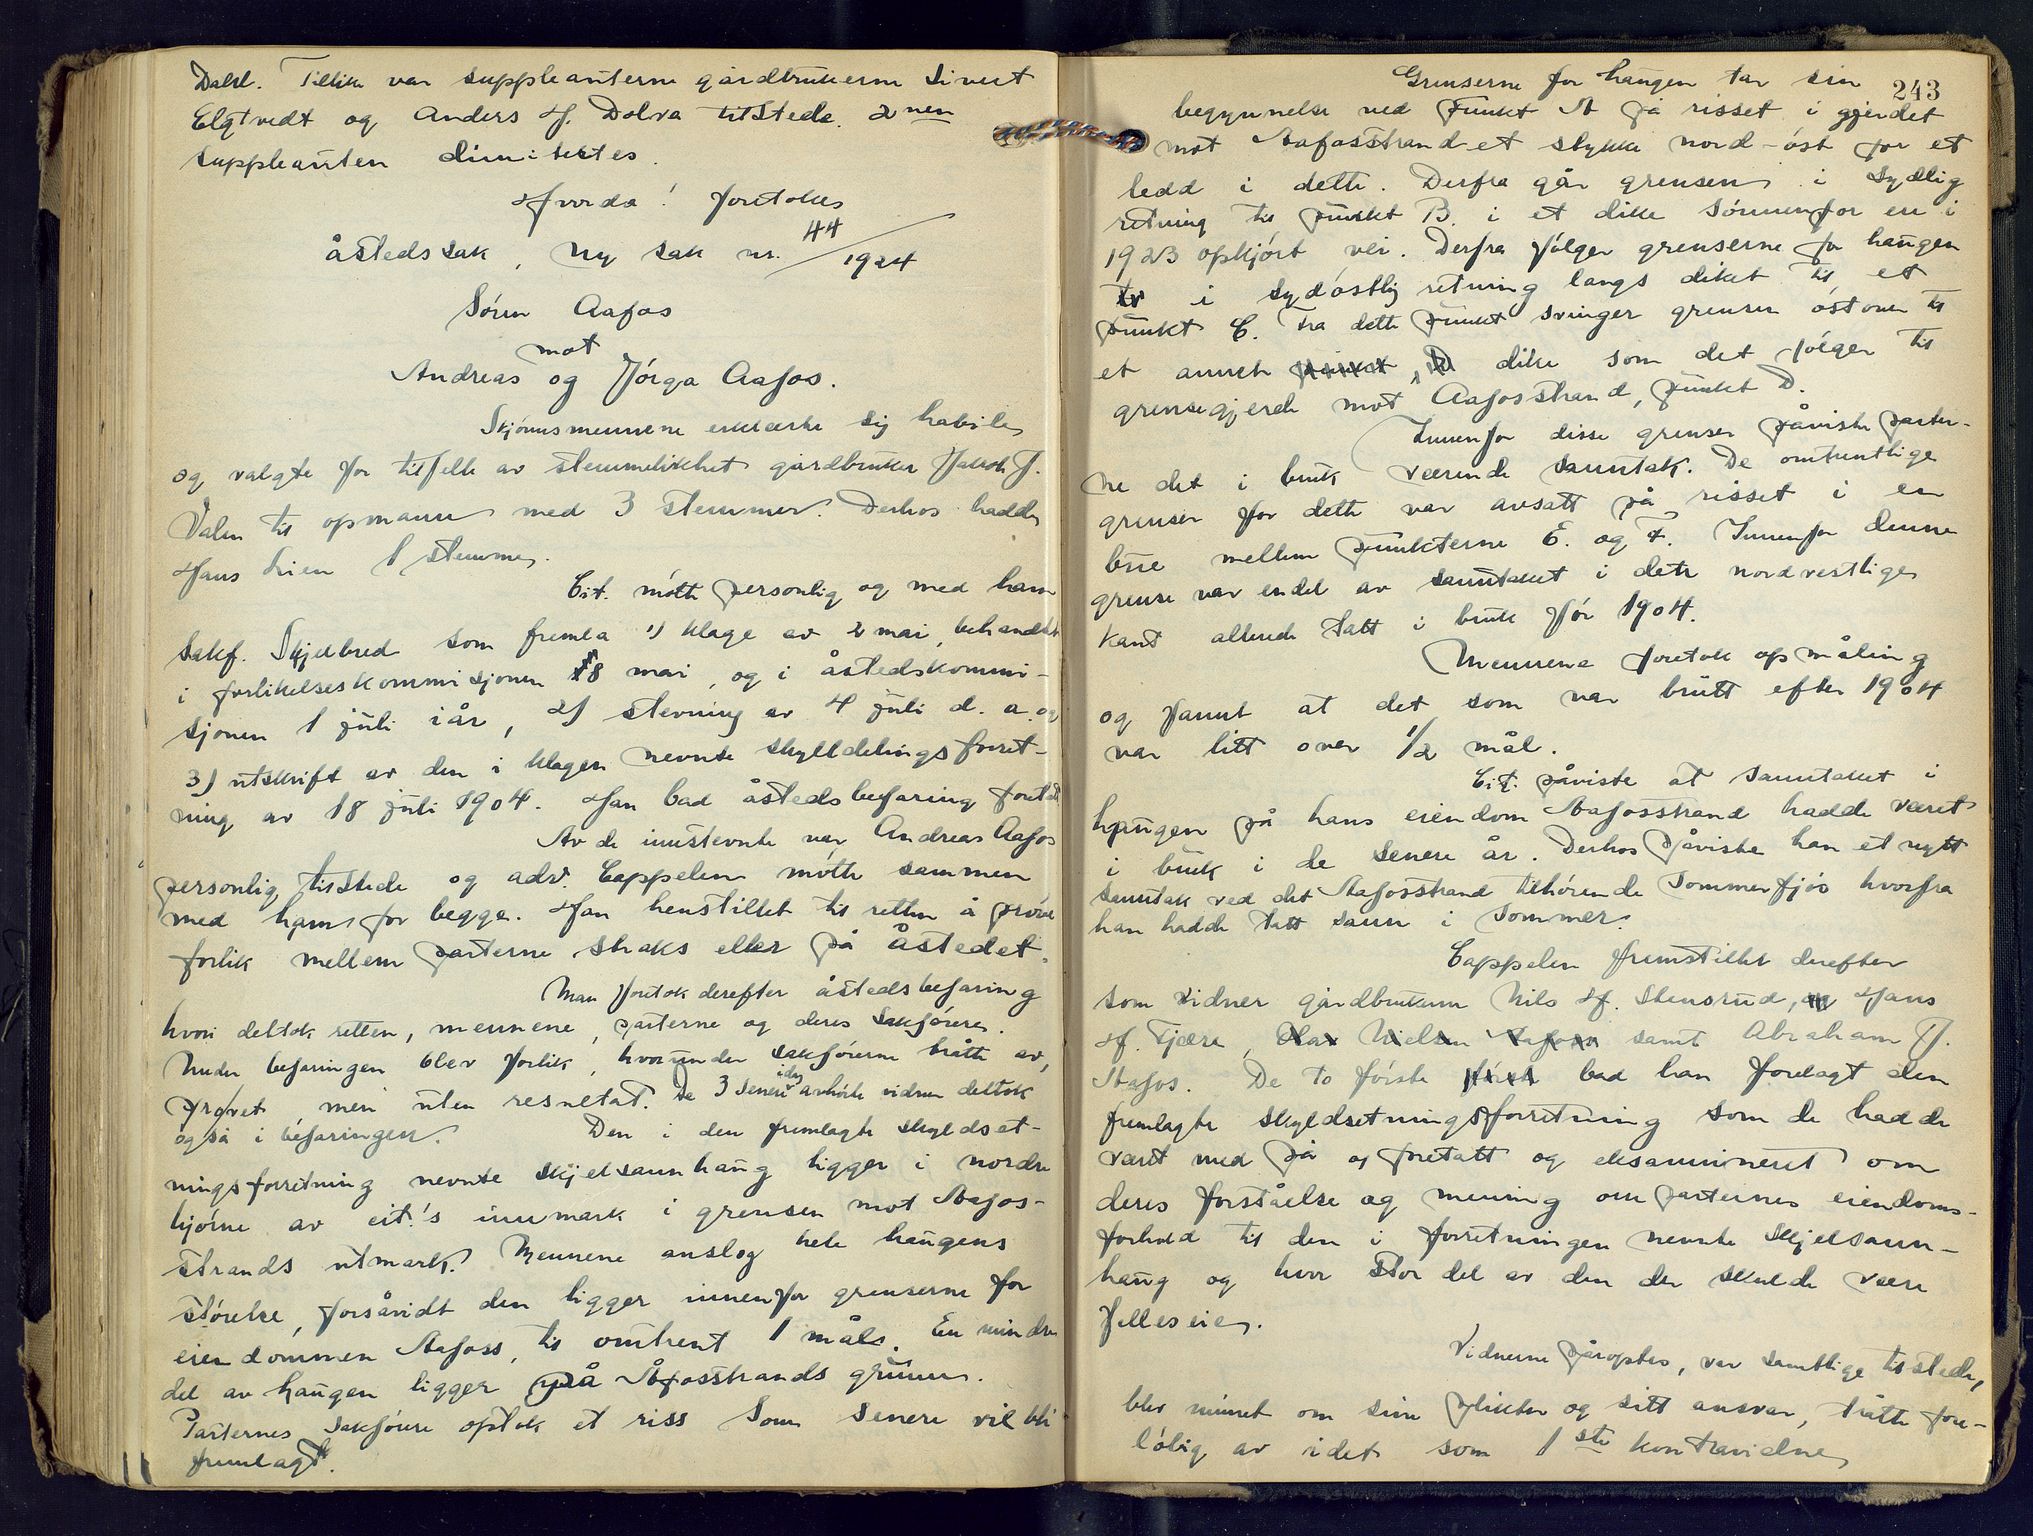 Dahl. Tillike var suppleanterne gårdbrukerne Sivert
Elgtvedt og Anders H. Dolva tilstede. 2nen
suppleanten dimitertes.
Hvorda! foretokes
åstedssak, ny sak nr. 44/1924
Sören Aafos
mot
Andreas og Jörga Aafos.
Skjönsmennene erklærte sig habile
og valgte for tilfelle av stemmelikhet gårdbruker Jakob J.
Valen til opmann med 3 stemmer. Derhos hadde
Hans Lien 1 stemme.
Cit. mötte personlig og med ham
sakf. Skjelbred som fremla 1) klage av 2 mai, behandlet
i forlikelseskommisjonen 18 mai, og i åstedskommi-
sjonen 1 juli iår, 2) stevning av 4 juli d. a. og
3) utskrift av den i klagen nevnte skylddelingsforret-
ning av 18 juli 1904. Han bad åstedsbefaring foretatt
Av de innstevnte var Andreas Aafos
personlig tilstede og adv. Cappelen mötte sammen
med ham for begge. Han henstillet til retten å pröve
forlik mellem parterne straks eller på åstedet.
Man foretok derefter åstedsbefaring
hvori deltok retten, mennene, parterne og deres sakförere.
Under befaringen blev forlik, hvorunder sakförerne trådte av,
prövet, men uten resultat. De 3 senere idag avhörte vidner deltok
også i befaringen. Den i den fremlagte skyldset-
ningsforretning nevnte skjelsannhaug ligger i nordre
hjörne av cit.'s innmark i grensen mot Aafos-
strands utmark. Mennene anslog hele haugens
störelse, forsåvidt den ligger innenfor grenserne for
eiendommen Aafoss, til omtrent 1 mål. En mindre
del av haugen ligger på Åfosstrands grunn.
Parternes sakförere optok et riss som senere vil bli
fremlagt.
243
Grenserne for haugen tar sin
begynnelse ved punkt A på risset i gjerdet
mot Aafosstrand et stykke nord-öst for et
ledd i dette. Derfra går grensen i sydlig
retning til punkt B. i et dike sönnenfor en i
1923 opkjört vei. Derfra fölger grenserne for haugen
i sydöstlig retning langs diket til et
punkt C. Fra dette punkt svinger grensen östover til
et annet dike som det fölger til
grensegjerde mot Aafosstrand, punkt D.
Innenfor disse grenser påviste parter-
ne det i bruk værende sanntak. De omtrentlige
grenser for dette var avsatt på risset i en
bue mellem punkterne E. og F. Innenfor denne
grense var endel av sanntaket i dets nordvestlige
kant allerede tatt i bruk för 1904.
Mennene foretok opmåling
og fannt at det som var brutt efter 1904
var litt over 1/2 mål.
Cit. påviste at sanntaket i
haugen på hans eiendom Aafosstrand hadde været
i bruk i de senere år. Derhos påviste han et nytt
sanntak ved det Aafosstrand tilhörende Sommerfjös hvorfra
han hadde tatt sann i sommer.
Cappelen fremstillet derefter
som vidner gårdbrukerne Nils H. Stensrud, Hans
H. Tjære, Olav Nielsen Aafoss samt Abraham J.
Aafos. De to förste bad han forelagt den
fremlagte skyldsetningsforretning som de hadde
været med på og foretatt og eksaminert om
deres forståelse og mening om parternes eiendoms-
forhold til den i forretningen nevnte skjelsann-
haug og hvor stor del av den der skulde være
felleseie.
Vidnerne påroptes, var samtlige tilstede,
blev minnet om sine plikter og sitt ansvar, trådte fore-
löbig av idet som 1ste kontravidne